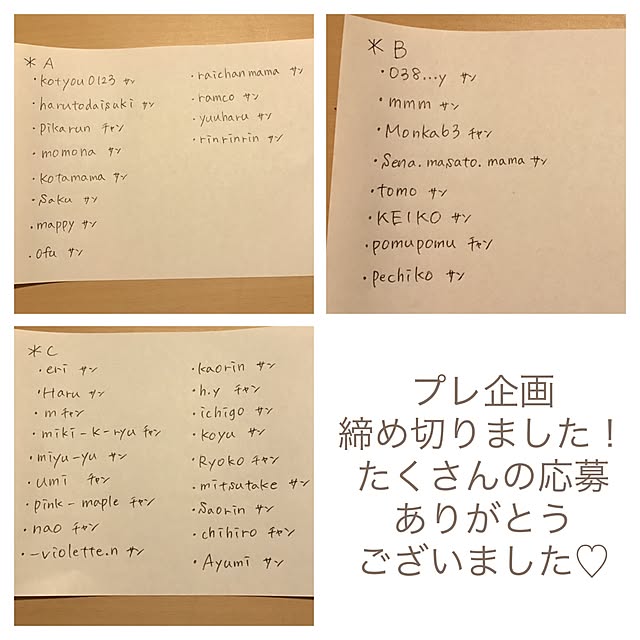 * A
・kotyou0123 サン
・harutodaisuki サン
・pikarun チャン
・momona サン
・kotamama サン
・saku サン
・mappy サン
・ofu サン
・raichanmama サン
・ramco サン
・yuuharu サン
・rinrinrin サン
* B
・038...y サン
・mmm サン
・Monka63 チャン
・Sena.masato.mama サン
・tomo サン
・KEIKO サン
・pomupomu チャン
・pechiko サン
* C
・eri サン
・Haru サン
・m チャン
・miki-k-ryu チャン
・miyu-yu サン
・umi チャン
・pink-maple チャン
・nao チャン
・-violette.n サン
・kaorin サン
・h.y チャン
・ichigo サン
・koyu サン
・Ryoko チャン
・mitsutake サン
・Saorin サン
・chihiro チャン
・Ayumi サン
プレ企画
締め切りました！
たくさんの応募
ありがとう
ございました♡